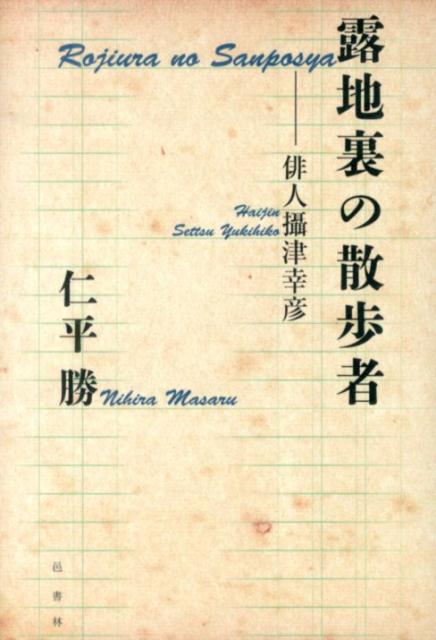 露地裏の散歩者
Rojiura no Sanposya
──俳人攝津幸彦
Haijin
Settsu Yukihiko
仁平勝
Nihira Masaru
邑書林